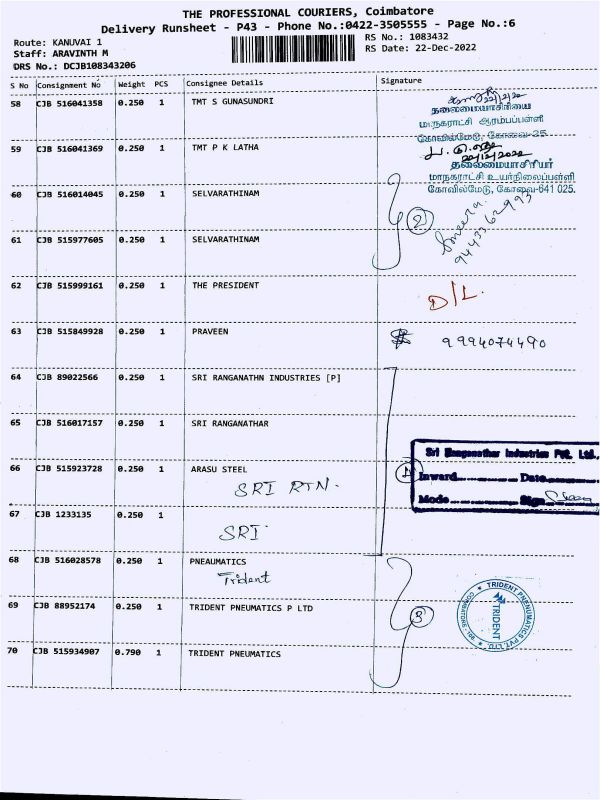 THE PROFESSIONAL COURIERS, Coimbatore
Delivery Runsheet - P43 - Phone No.:0422-3505555 - Page No.:6
Route: KANUVAI 1
Staff: ARAVINTH M
DRS No.: DCJB108343206
RS No.: 1083432
RS Date: 22-Dec-2022
S No Consignment No Weight PCS Consignee Details Signature
58 CJB 516041358 0.250 1 TMT S GUNASUNDRI
22/12/22
தலைமையாசிரியை
மாநகராட்சி ஆரம்பப்பள்ளி
கோவில்மேடு, கோவை-25
59 CJB 516041369 0.250 1 TMT P K LATHA
22/12/2022
தலைமையாசிரியர்
மாநகராட்சி உயர்நிலைப்பள்ளி
கோவில்மேடு, கோவை-641 025.
60 CJB 516014045 0.250 1 SELVARATHINAM
2
61 CJB 515977605 0.250 1 SELVARATHINAM
62 CJB 515999161 0.250 1 THE PRESIDENT
D/L.
63 CJB 515849928 0.250 1 PRAVEEN
9994074490
64 CJB 89022566 0.250 1 SRI RANGANATHN INDUSTRIES [P]
65 CJB 516017157 0.250 1 SRI RANGANATHAR
Sri Ranganathar Industries Pvt. Ltd.,
66 CJB 515923728 0.250 1 ARASU STEEL
SRI RTN.
Inward Date
Mode Sign
67 CJB 1233135 0.250 1
SRI
68 CJB 516028578 0.250 1 PNEAUMATICS
Trident
69 CJB 88952174 0.250 1 TRIDENT PNEUMATICS P LTD
3
TRIDENT PNEUMATICS PVT. LTD.
TRIDENT
70 CJB 515934907 0.790 1 TRIDENT PNEUMATICS